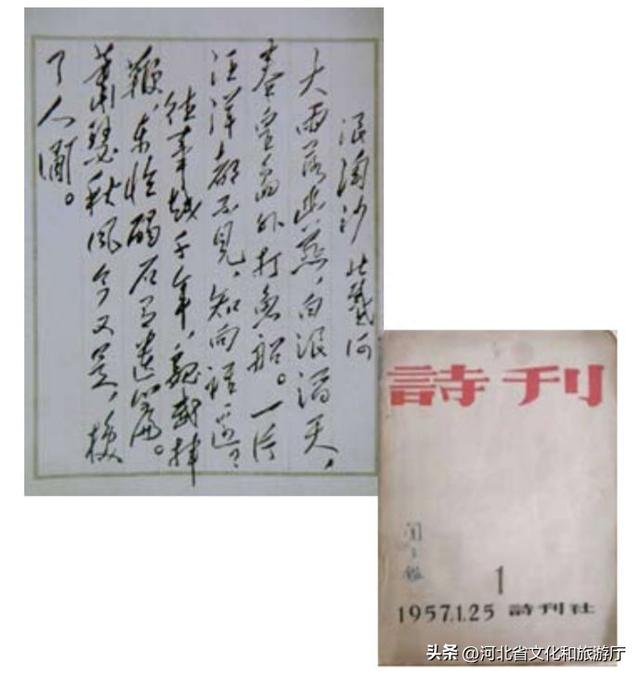 浪淘沙 北戴河
大雨落幽燕,白浪滔天,
秦皇岛外打鱼船。一片
汪洋都不见,知向谁边?
往事越千年,魏武挥
鞭,东临碣石有遗篇。
萧瑟秋风今又是,换
了人间。
詩刊
1
1957.1.25 詩刊社
头条 @河北省文化和旅游厅